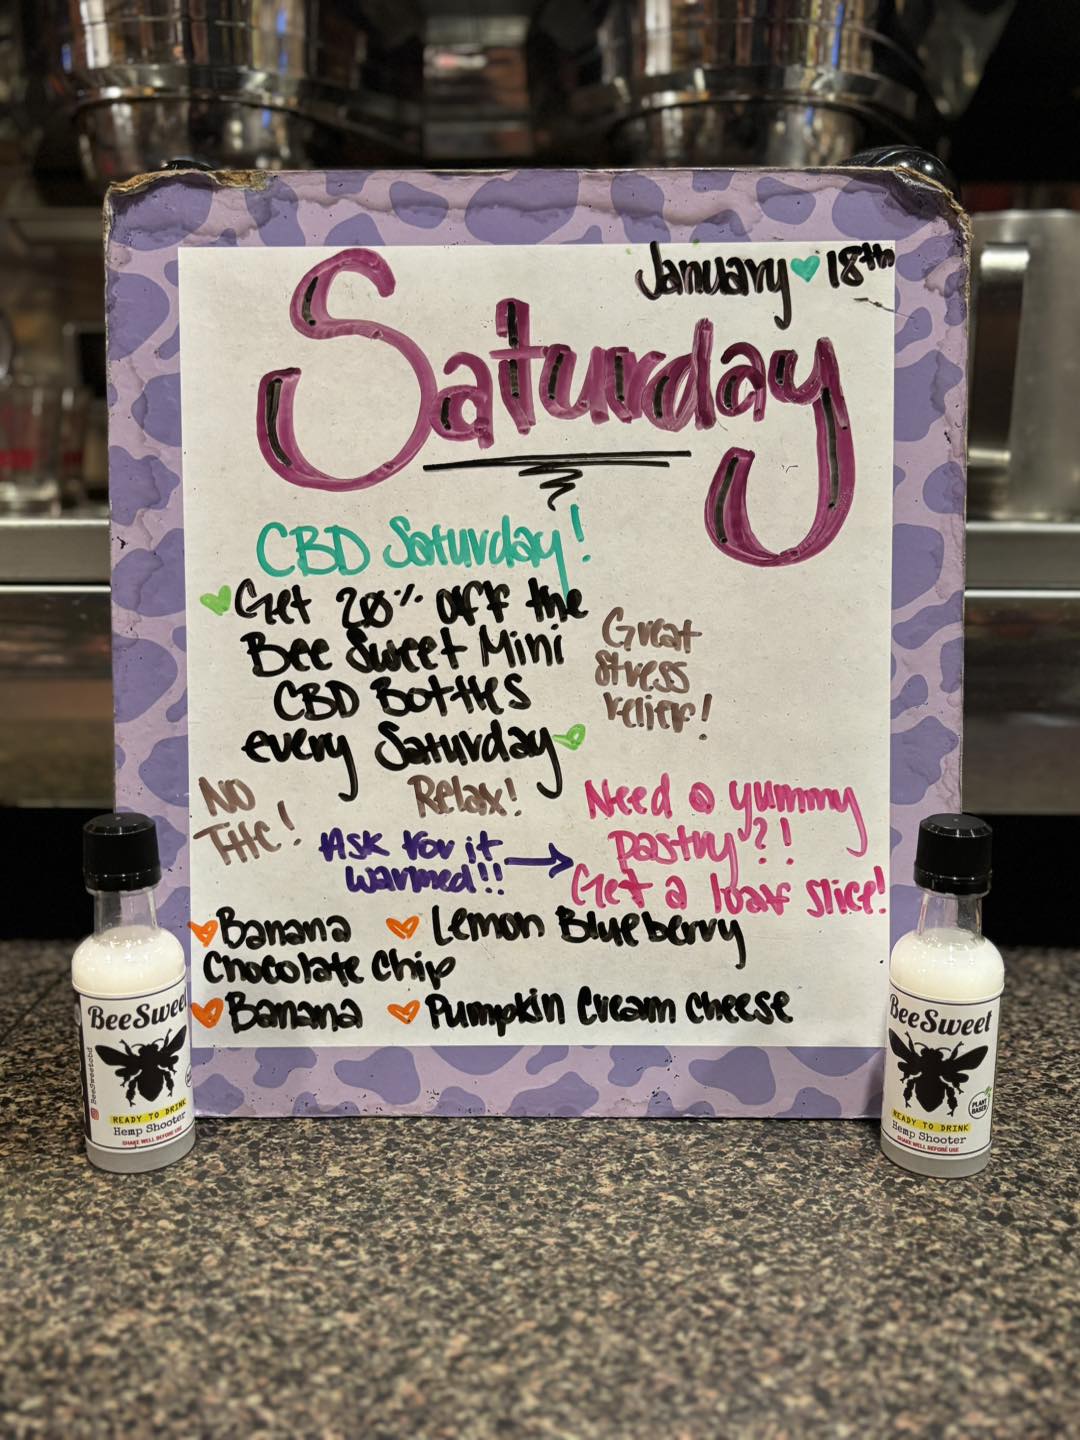 January 18th
Saturday
CBD Saturday!
Get 20% off the
Bee Sweet Mini
CBD Bottles
every Saturday
Great
stress
relief!
NO
THC!
Relax!
Ask for it
warmed!!
Need a yummy
pastry?!
Get a loaf slice!
Banana
Chocolate Chip
Lemon Blueberry
Banana
Pumpkin Cream Cheese
BeeSweet
READY TO DRINK
Hemp Shooter
SHAKE WELL BEFORE USE
BeeSweetcbd
BeeSweet
PLANT
BASED
READY TO DRINK
Hemp Shooter
SHAKE WELL BEFORE USE